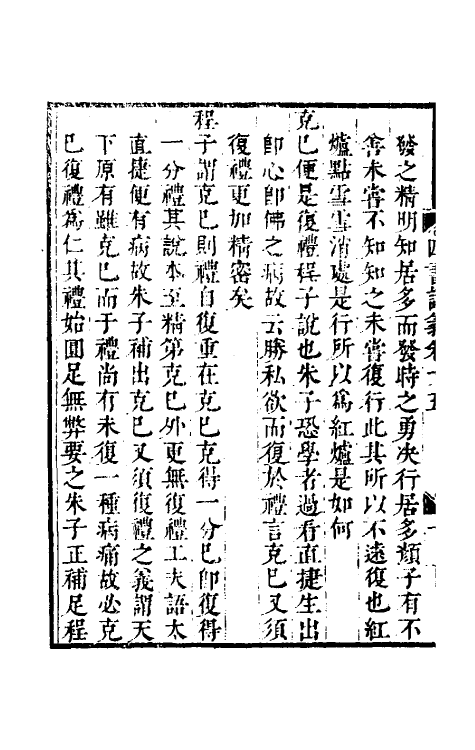 四書講義卷十五
發之精明知居多而發時之勇決行居多顏子有不
善未嘗不知知之未嘗復行此其所以不遠復也紅
爐點雪雪消處是行所以爲紅爐是如何
克巳便是復禮程子說也朱子恐學者過看直捷生出
卽心卽佛之病故云勝私欲而復於禮言克巳又須
復禮更加精密矣
程子謂克巳則禮自復重在克巳克得一分巳卽復得
一分禮其說本至精第克巳外更無復禮工夫語太
直捷便有病故朱子補出克巳又須復禮之義謂天
下原有雖克巳而于禮尚有未復一種病痛故必克
巳復禮爲仁其禮始圓足無弊要之朱子正補足程